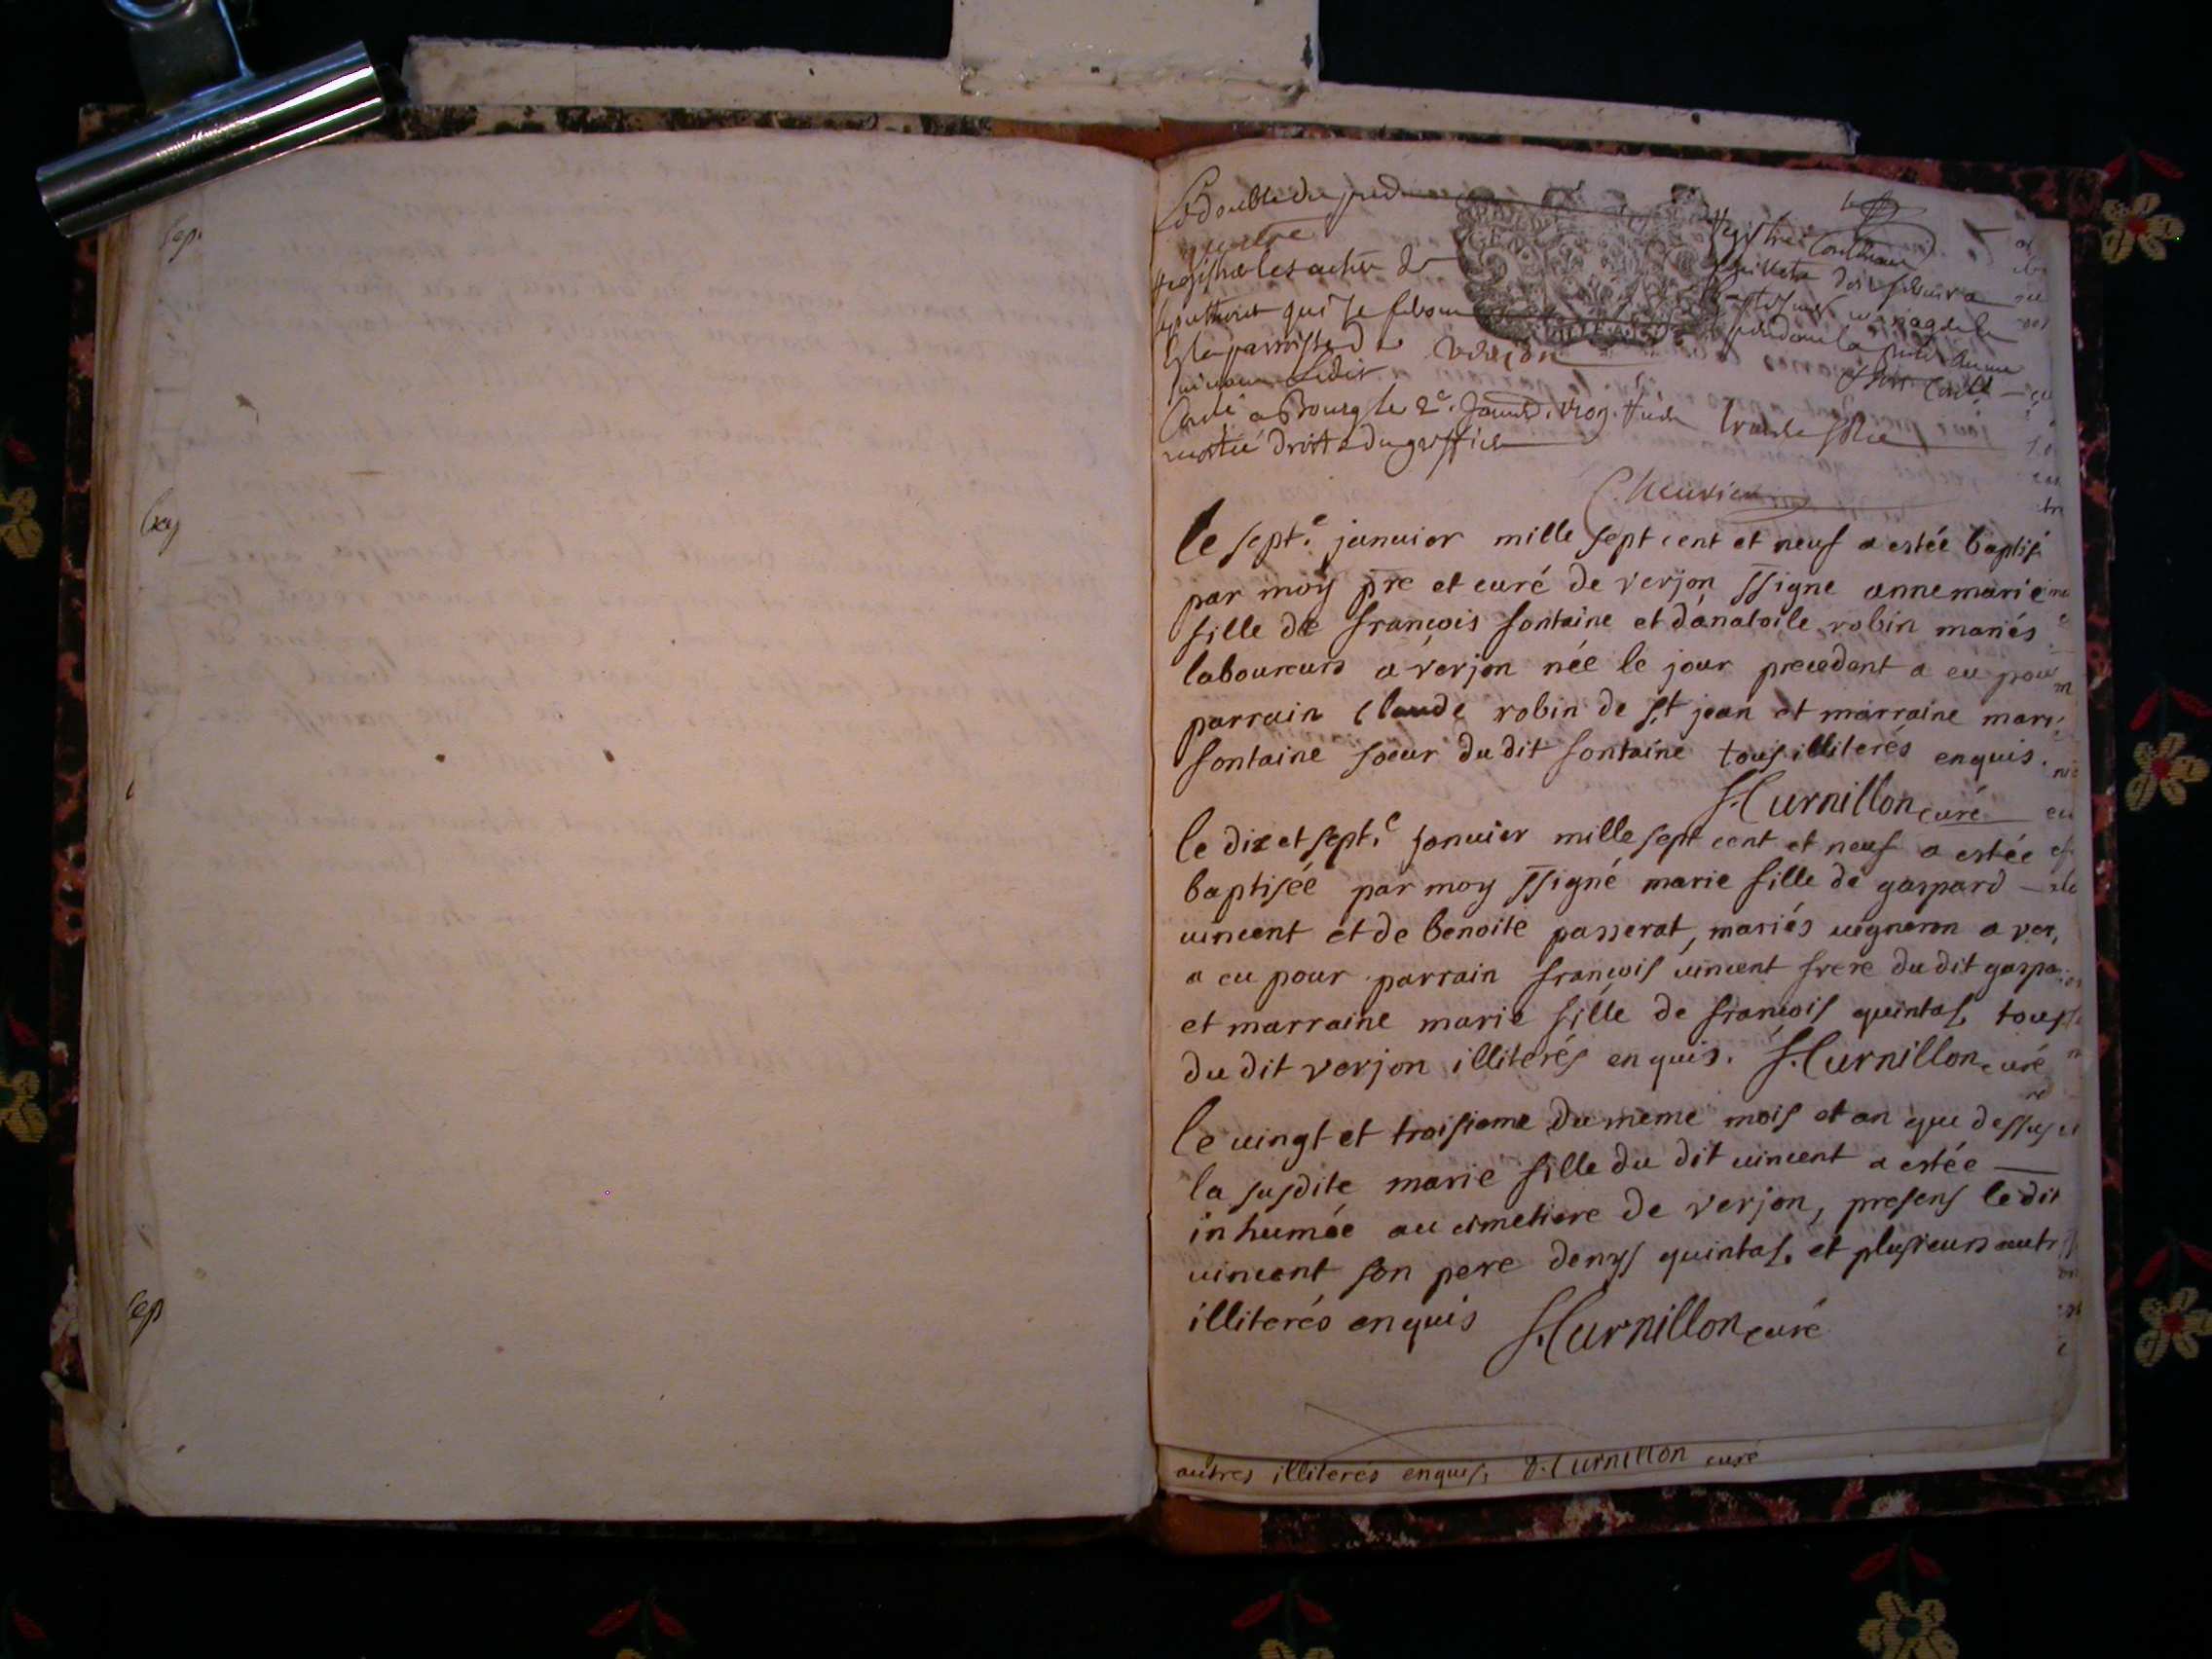 Le double du
registre
registre Contenant
registre les actes de
feuillets
baptesmes mariages
sepultures qui se feront
pendant la pnte année
la parroisse de Verjon
Cotté a Bourg le 2e. Janvr. 1709.
moitié droit du greffier
Chevrier
le sept.e januier mille sept cent et neuf a estée baptisé
par moy pre et curé de verjon ssigne anne marie
fille de françois fontaine et d'anatoile robin mariés
laboureurs a verjon née le jour precedent a eu pour
parrain claude robin de st jean et marraine mari
fontaine soeur du dit fontaine tous illiterés enquis.
Hurnillon curé
le dix et sept.e januier mille sept cent et neuf a estée
baptisée par moy ssigné marie fille de gaspard
uincent et de benoite passerat, mariés uigneron a ver,
a eu pour parrain françois uincent frere du dit gaspa
et marraine marie fille de françois quintas, tous
du dit verjon illiterés enquis. Hurnillon curé
le uingt et troisieme du meme mois et an que dessus
la susdite marie fille du dit uincent a estée
inhumée au cimetiere de verjon, presens le dit
uincent son pere denys quintas, et plusieurs autr
illiterés enquis Hurnillon curé
autres illiterés enquis, Hurnillon curé